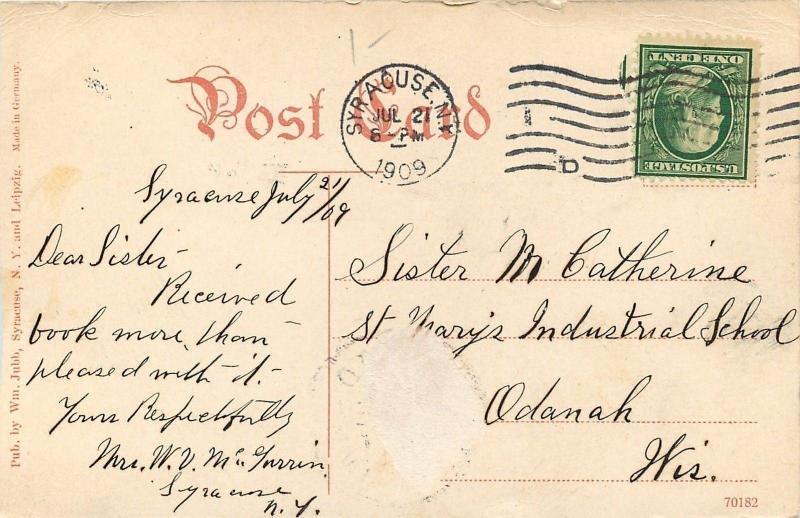 Post Card
SYRACUSE, N.Y.
JUL 21
6-PM
1909
ONE CENT
U.S. POSTAGE
Syracuse July 21/09
Dear Sister-
Received
book more than
pleased with it.-
Yours Respectfully
Mrs. W. V. McGurrin
Syracuse
N.Y.
Sister M Catherine
St Mary's Industrial School
Odanah
Wis.
Pub. by Wm. Jubb, Syracuse, N. Y. and Leipzig. Made in Germany.
70182